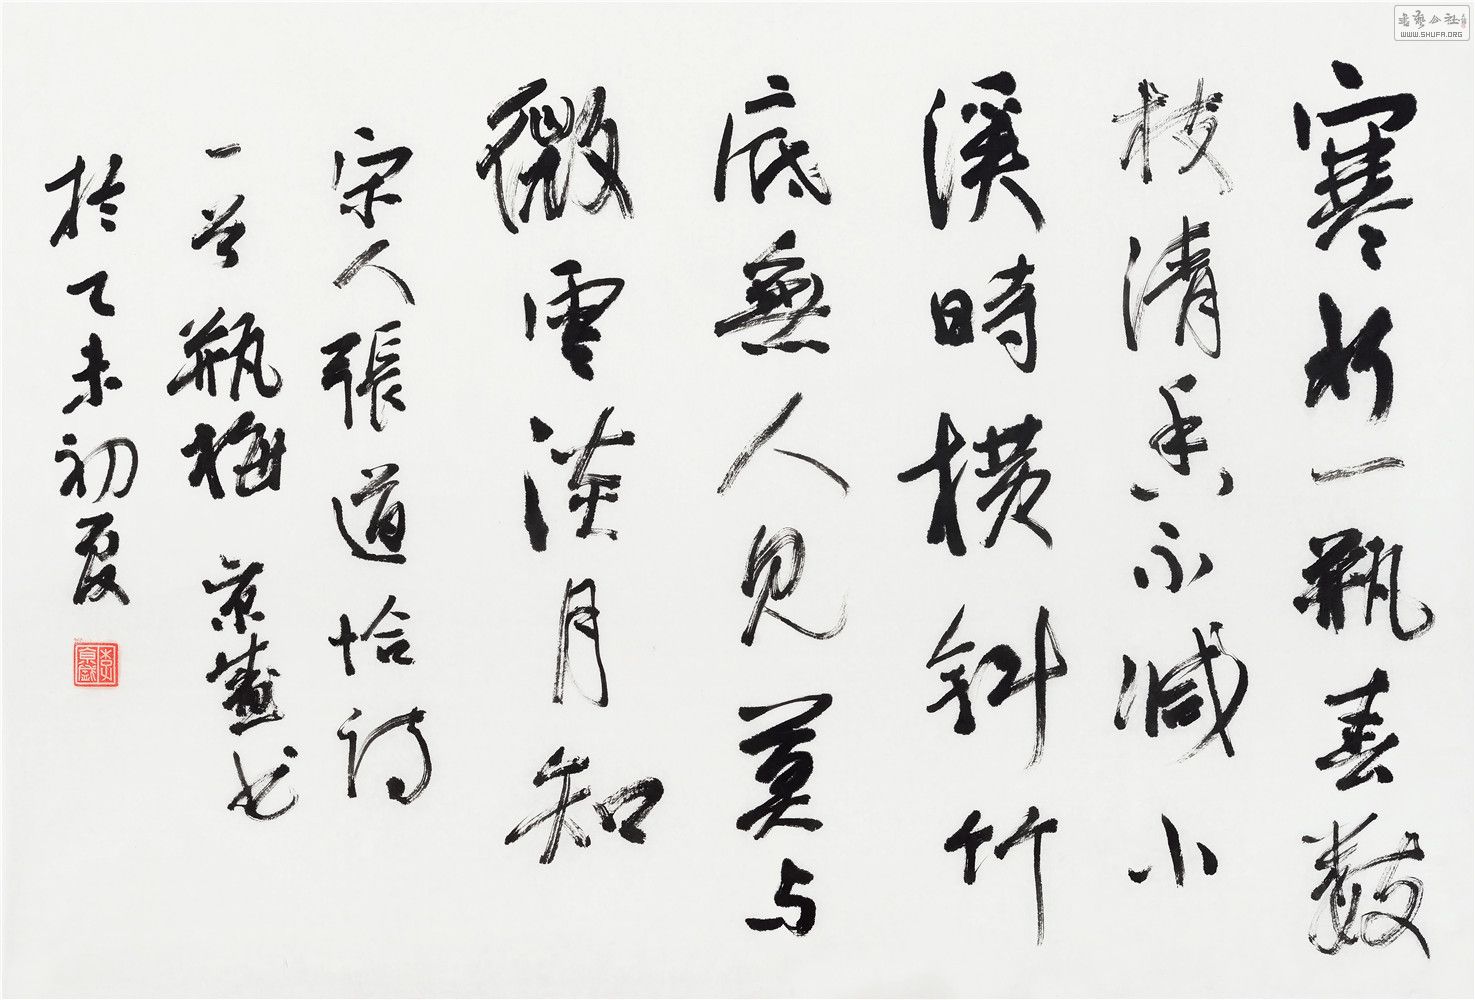 寒水一瓶春數
枝清香不减小
溪時橫斜竹
底無人見莫与
微雲淡月知
宋人張道恰詩
一首瓶梅 京书
於乙未初夏
书艺公社
WWW.SHUFA.ORG